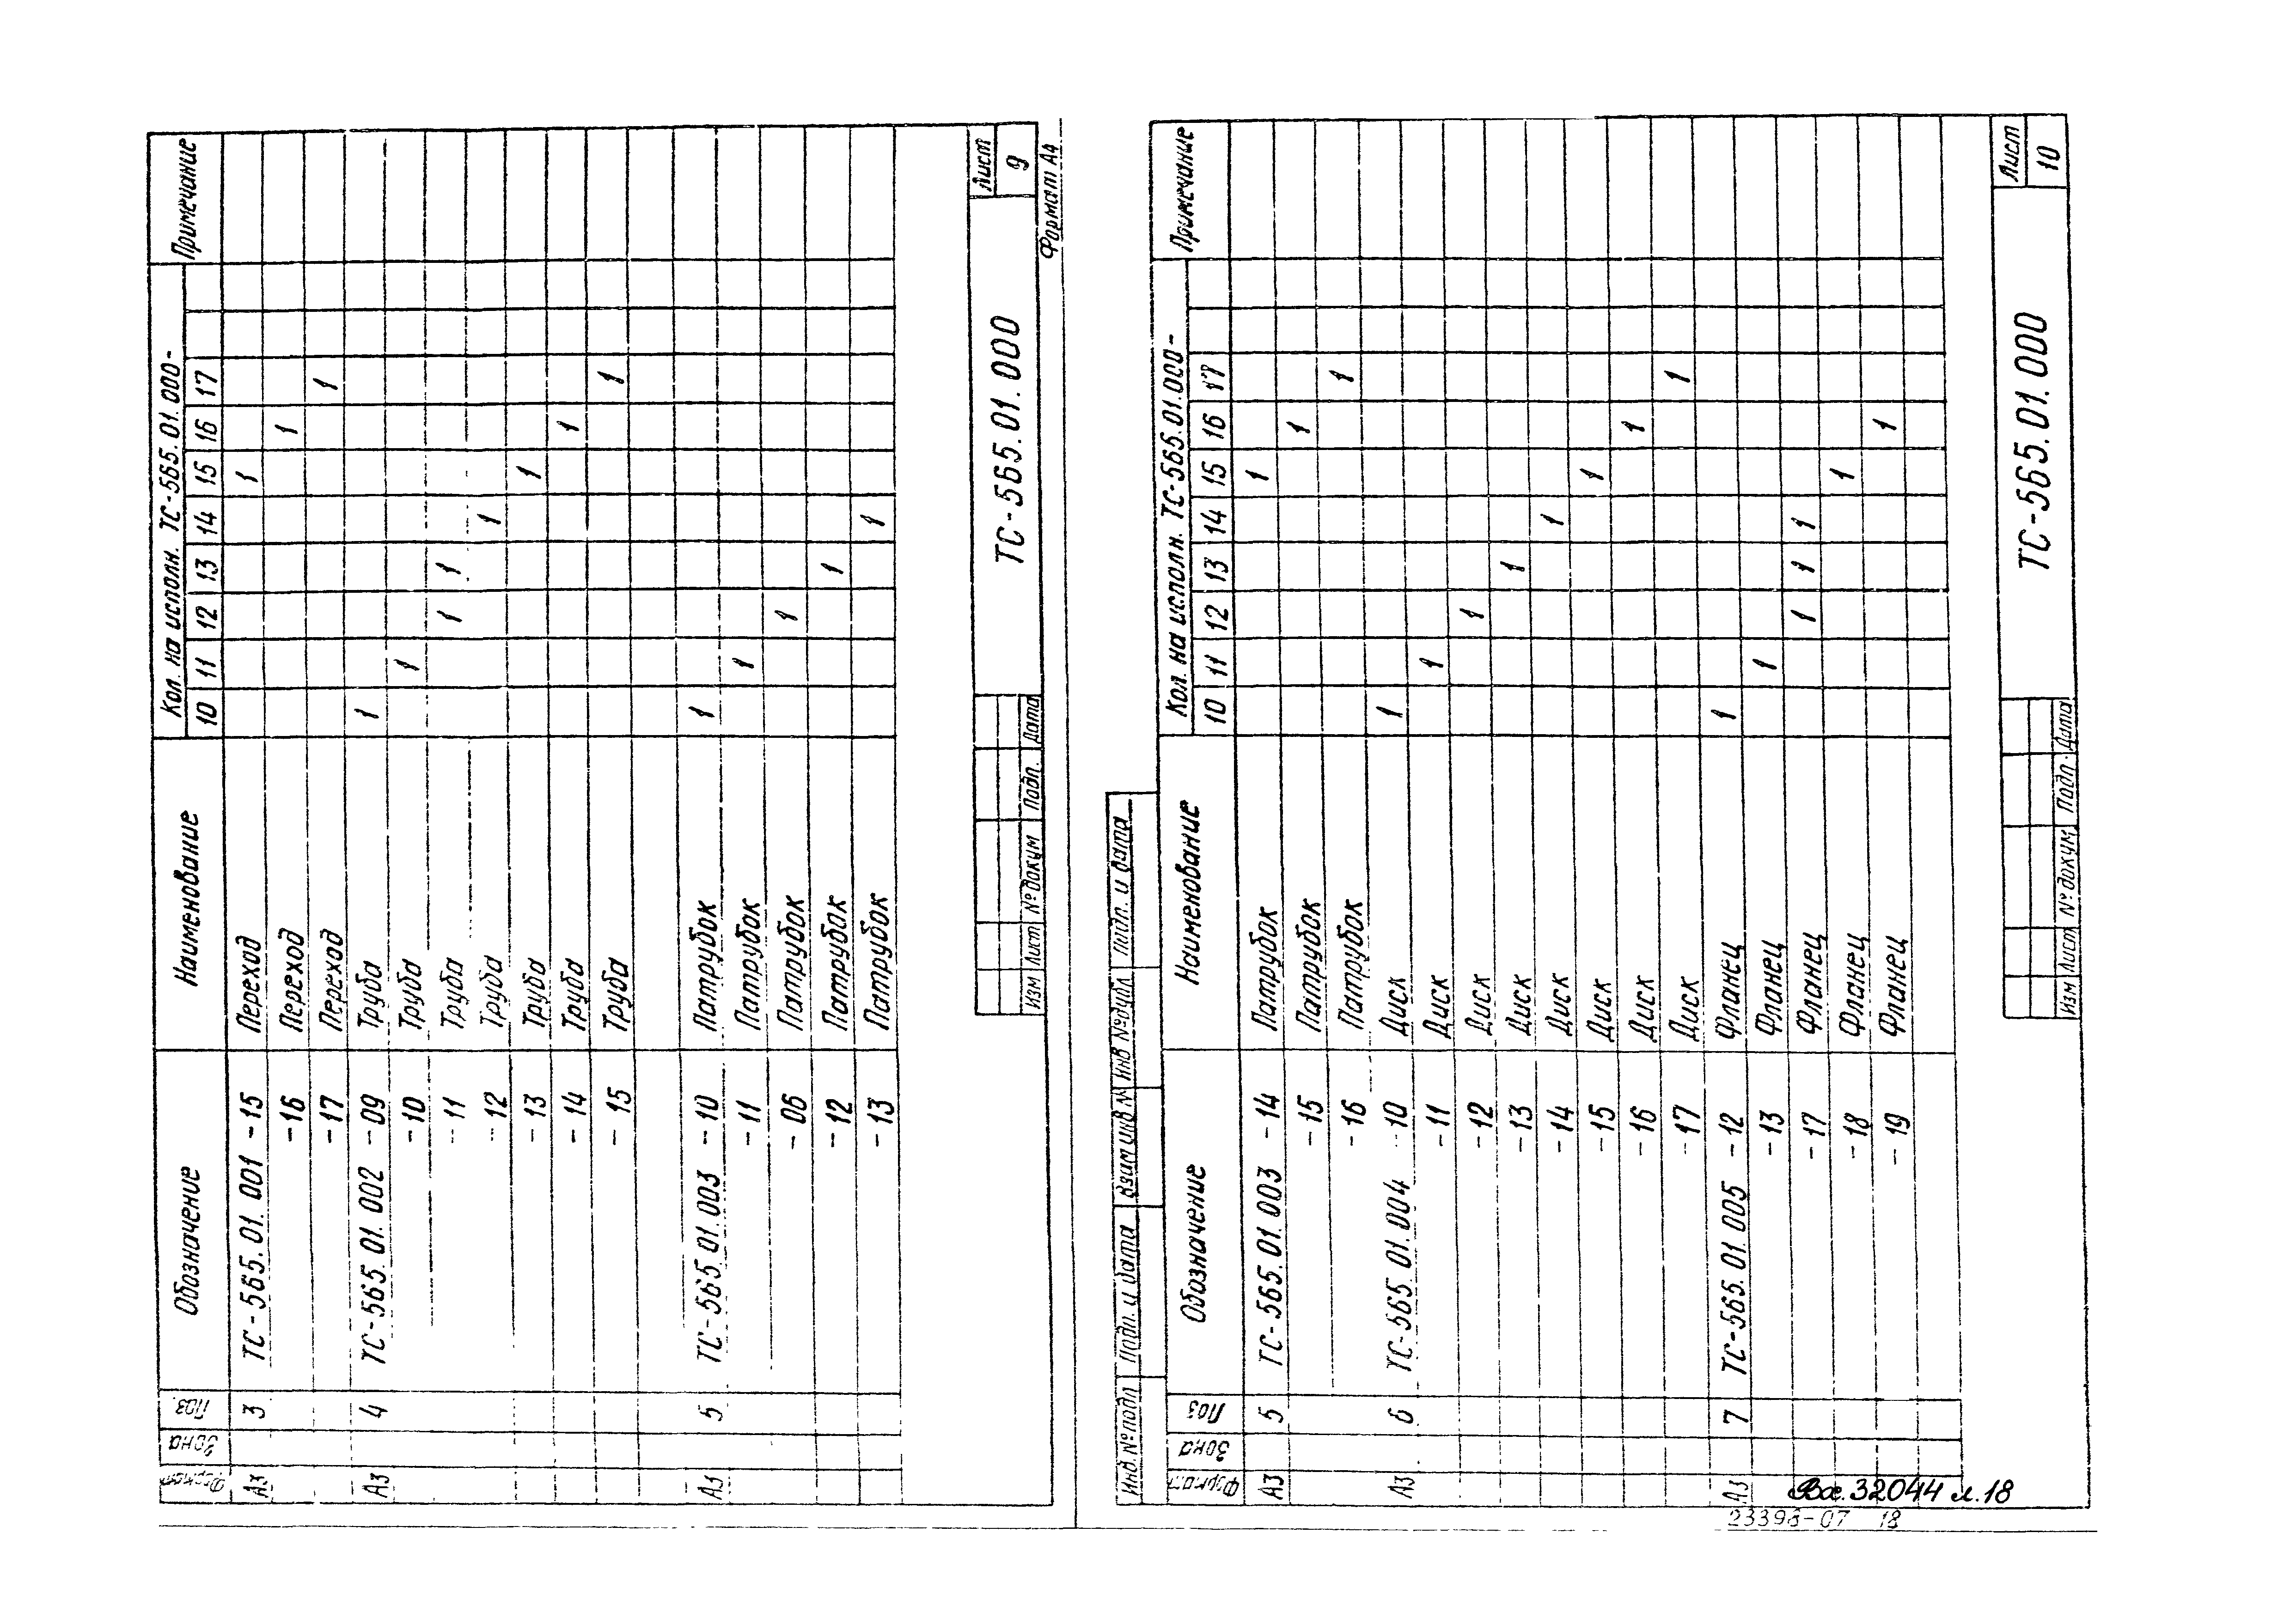 Формат Зона Поз. Обозначение Наименование Кол. на исполн. ТС-565.01.000- Примечание
10 11 12 13 14 15 16 17
А3 3 ТС-565.01.001 -15 Переход 1
-16 Переход 1
-17 Переход 1
А3 4 ТС-565.01.002 -09 Труба 1
-10 Труба 1
-11 Труба 1 1
-12 Труба 1
-13 Труба 1
-14 Труба 1
-15 Труба 1
А3 5 ТС-565.01.003 -10 Патрубок 1
-11 Патрубок 1
-06 Патрубок 1
-12 Патрубок 1
-13 Патрубок 1
Изм Лист № докум Подп. Дата
ТС-565.01.000
Лист
9
Формат А4
Инв. № подл Подп. и дата Взам инв № Инв № дубл Подп. и дата
Формат Зона Поз Обозначение Наименование Кол. на исполн. ТС-565.01.000- Примечание
10 11 12 13 14 15 16 17
А3 5 ТС-565.01.003 -14 Патрубок 1
-15 Патрубок 1
-16 Патрубок 1
А3 6 ТС-565.01.004 -10 Диск 1
-11 Диск 1
-12 Диск 1
-13 Диск 1
-14 Диск 1
-15 Диск 1
-16 Диск 1
-17 Диск 1
А3 7 ТС-565.01.005 -12 Фланец 1
-13 Фланец 1
-17 Фланец 1 1 1
-18 Фланец 1
-19 Фланец 1
Изм Лист № докум Подп. Дата
ТС-565.01.000
Лист
10
Вх. 32044 л. 18
23398-07 18